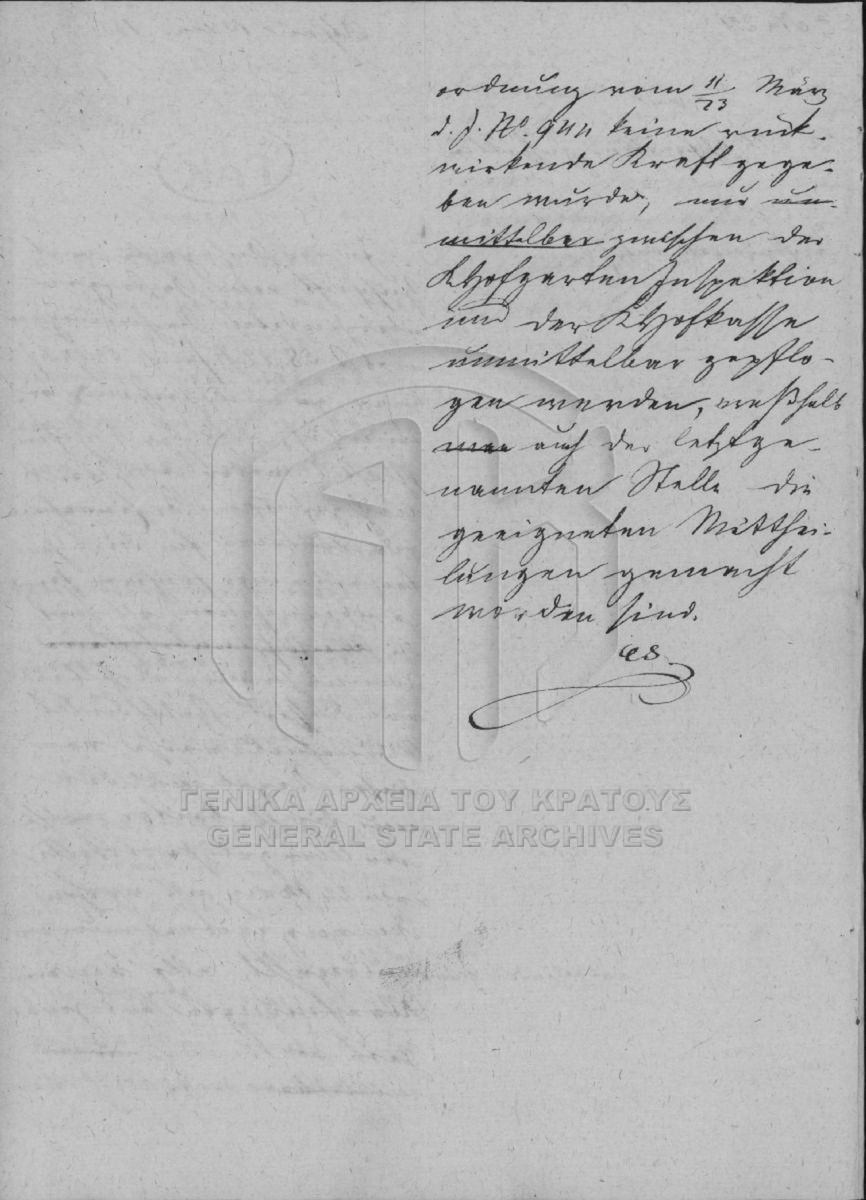 ordnung vom 11/23 März
d. J. No. 944 keine rück-
wirkende Kraft gege-
ben wurde, nur un-
mittelbar zwischen der
K Hofgarten Inspektion
und der K Hofkasse
unmittelbar gepflo-
gen werden, weßhalb
man auch der letztge-
nannten Stelle die
geeigneten Mitthei-
lungen gemacht
worden sind.
ΓΕΝΙΚΑ ΑΡΧΕΙΑ ΤΟΥ ΚΡΑΤΟΥΣ
GENERAL STATE ARCHIVES